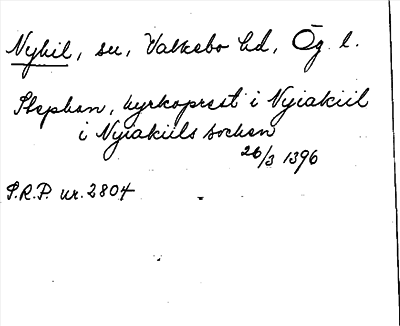 Nykil, sn, Valkebo hd, Ög l.
Stephan, kyrkoprest i Nyiakiil
i Nyiakiils sochen
26/3 1396
S.R.P. nr. 2804